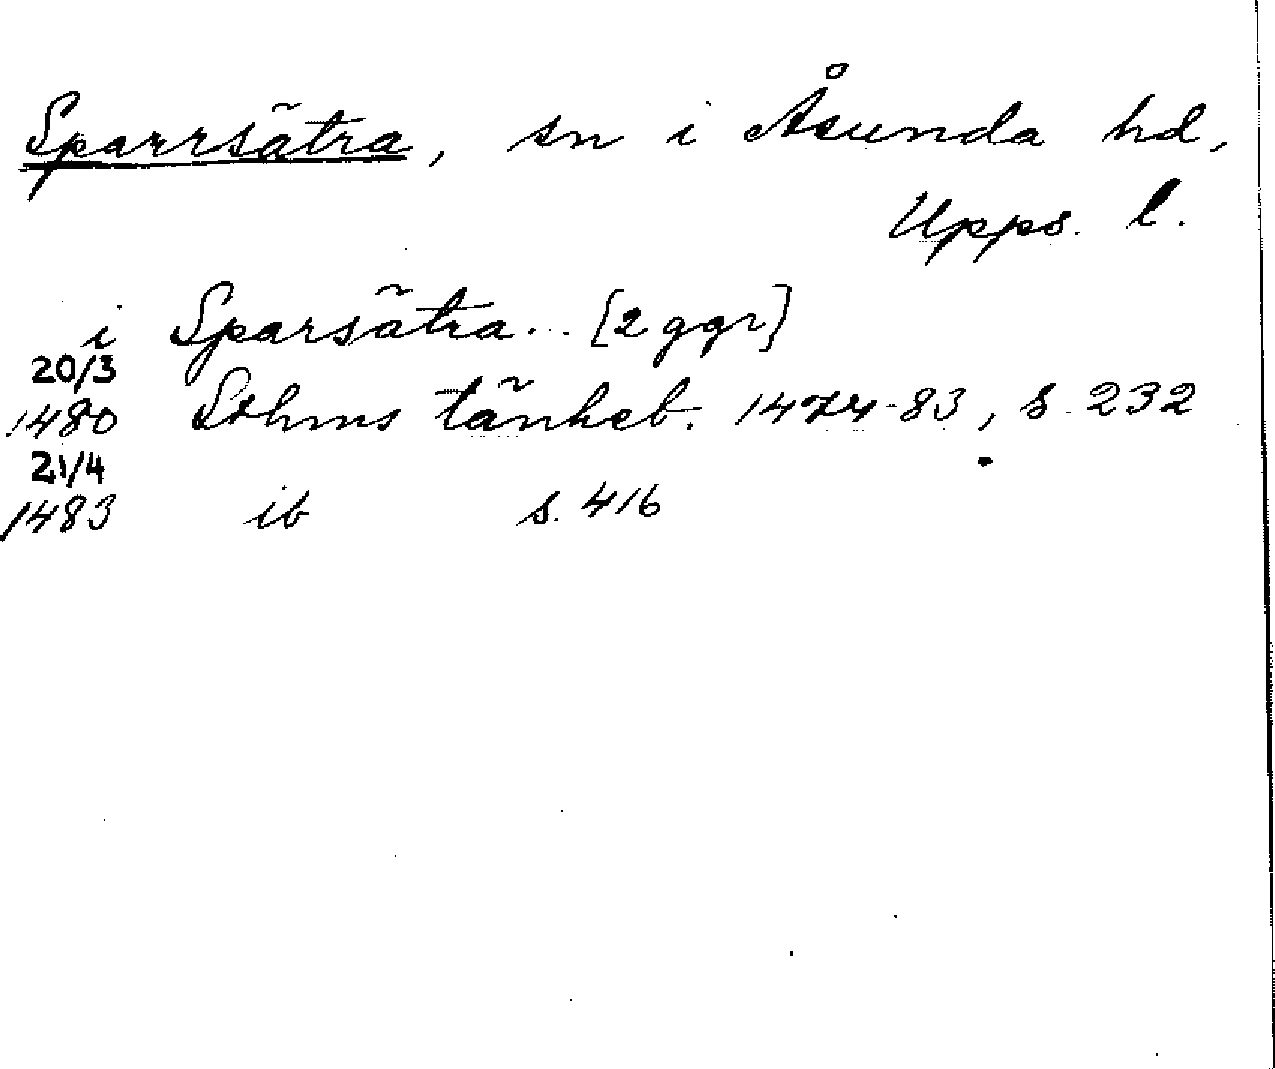 Sparrsätra, sn i Åsunda hd,
Upps. l.
i Sparsätra... [2 ggr]
20/3
1480 Sthms tänkeb. 1474-83, s. 232
21/4
1483 ib s. 416